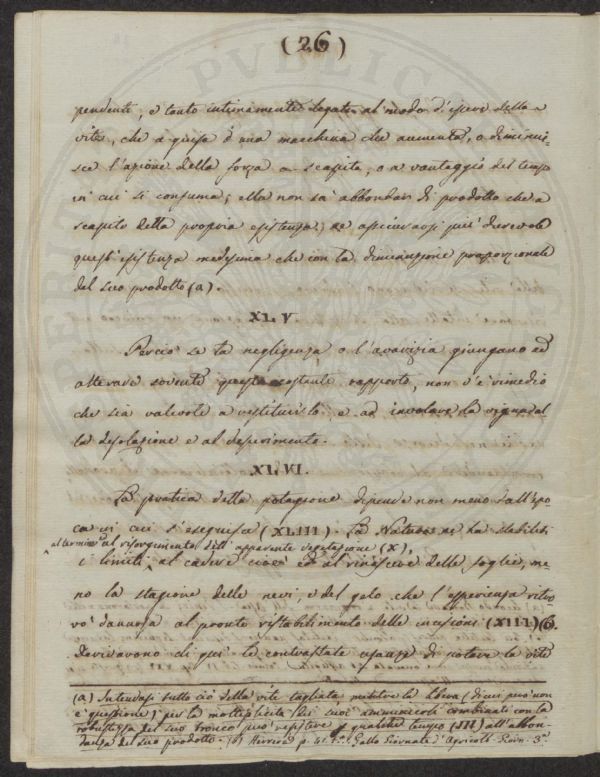 (26)
pendenti, e tanto intimamente legate al modo d'essere della
vite, che a guisa d'una macchina che aumenta, o diminui-
sce l'azione della forza a scapito, o a vantaggio del tempo
in cui si consuma; ella non sa abbondar di prodotto che a
scapito della propria esistenza, ne assicurarsi più durevole
quest'esistenza medesima che con la diminuzione proporzionale
del suo prodotto (a).
XLV.
Perciò se la negligenza, o l'avarizia giungano ad
alterare sovente questo costante rapporto, non v'è rimedio
che sia valevole a restituirlo, e ad involare la vigna dal
la desolazione e al deperimento.
XLVI.
La pratica della potagione dipende non meno dall'epo
ca in cui s'eseguisca (XLIII). La Natura ne ha stabiliti
al termine al risorgimento dell'apparente vegetazione (X),
i limiti, al cadere cioè ed al rinascere delle foglie, me
no la stagione delle nevi, e del gelo che l'esperienza ritro
vò dannosa al pronto ristabilimento delle incisioni (XIII) (b).
Derivarono di qui le contrastate usanze di potare la vite
(a) Intendasi tutto ciò della vite tagliata
è questione) per la moltiplicità dei suoi combinati con la
robustezza del suo tronco può resistere qualche tempo (III) all'abbon-
danza del suo prodotto. (b) Herrera p. Gallo Giornate d'Agricolt. Giorn. 3ª.